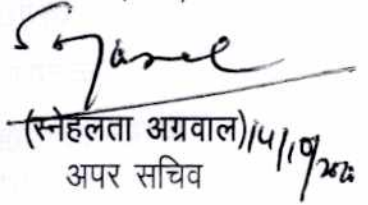 (स्नेहलता अग्रवाल) 14/10/
अपर सचिव